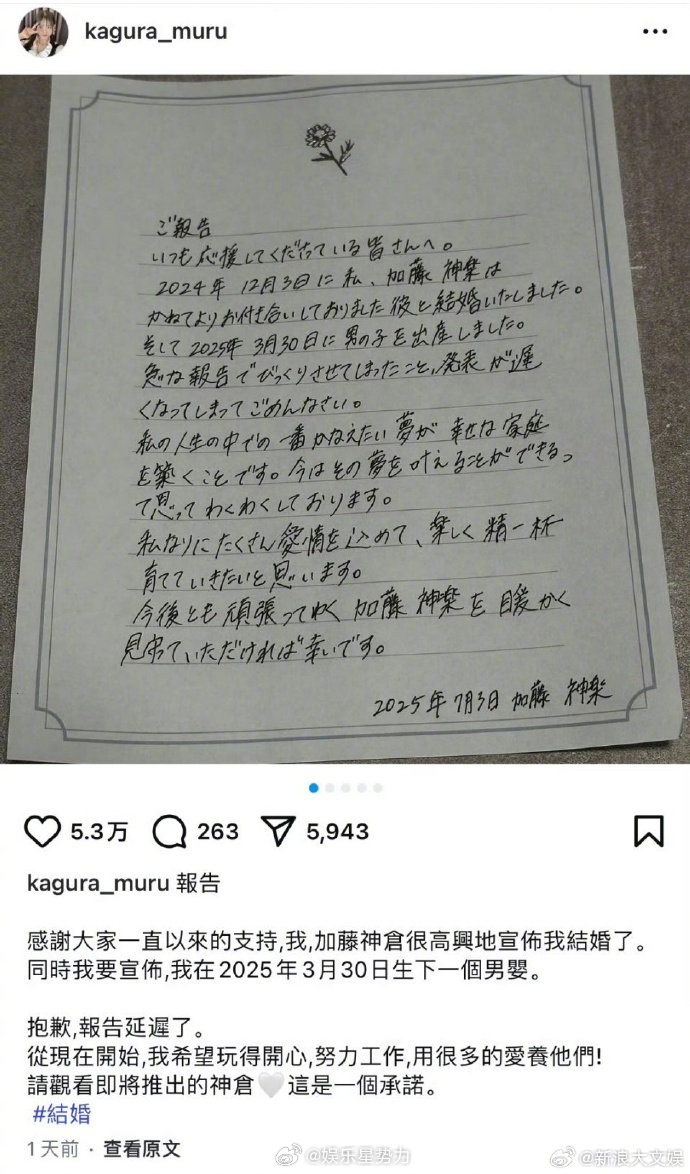 kagura_muru
ご報告
いつも応援してくださっている皆さんへ。
2024年 12月3日に私、加藤 神楽は
かねてよりお付き合いしておりました彼と結婚いたしました。
そして 2025年 3月30日に男の子を出産しました。
急な報告でびっくりさせてしまったこと、発表が遅
くなってしまってごめんなさい。
私の人生の中での一番かなえたい夢が 幸せな家庭
を築くことです。今はその夢を叶えることができるっ
て思ってわくわくしております。
私なりにたくさん愛情を込めて、楽しく 精一杯
育てていきたいと思います。
今後とも頑張ってゆく 加藤 神楽を 暖かく
見守っていただければ幸いです。
2025年 7月3日 加藤 神楽
5.3万 263 5,943
kagura_muru 報告
感謝大家一直以來的支持,我,加藤神倉很高興地宣佈我結婚了。
同時我要宣佈,我在2025年3月30日生下一個男嬰。
抱歉,報告延遲了。
從現在開始,我希望玩得開心,努力工作,用很多的愛養他們!
請觀看即將推出的神倉🤍這是一個承諾。
#結婚
1天前 · 查看原文
@娱乐星势力
@新浪大文娱